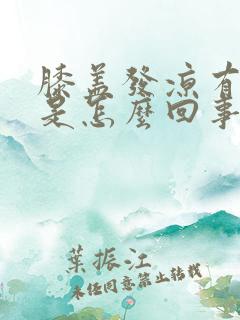 膝盖發凉有
是怎麼回事
葉振江
未经同意禁止转载